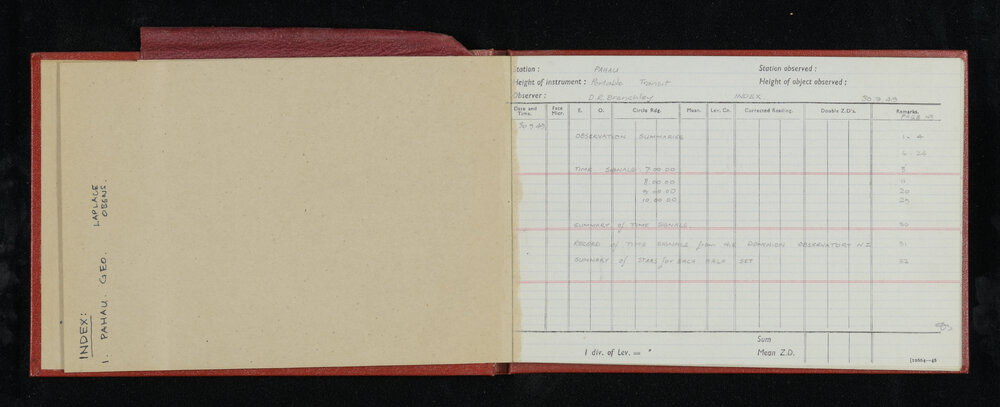 INDEX:
1. PAHAU. GEO. LAPLACE OBSNS.
Station : PAHAU Station observed :
Height of instrument : Portable Transit Height of object observed :
Observer : D.R. Brenchley INDEX 30.9.49
Date and Time. Face Micr. E. O. Circle Rdg. Mean. Lev. Co. Corrected Reading. Double Z.D's. Remarks.
PAGE No
30.9.49
OBSERVATION SUMMARIES 1 - 4
6 - 26
TIME SIGNALS 7.00.00 5
8.00.00 11
9.00.00 20
10.00.00 25
SUMMARY of TIME SIGNALS 30
RECORD of TIME SIGNALS from the DOMINION OBSERVATORY N.Z. 31
SUMMARY of STARS for EACH HALF SET 32
Sum
1 div. of Lev. = " Mean Z.D.